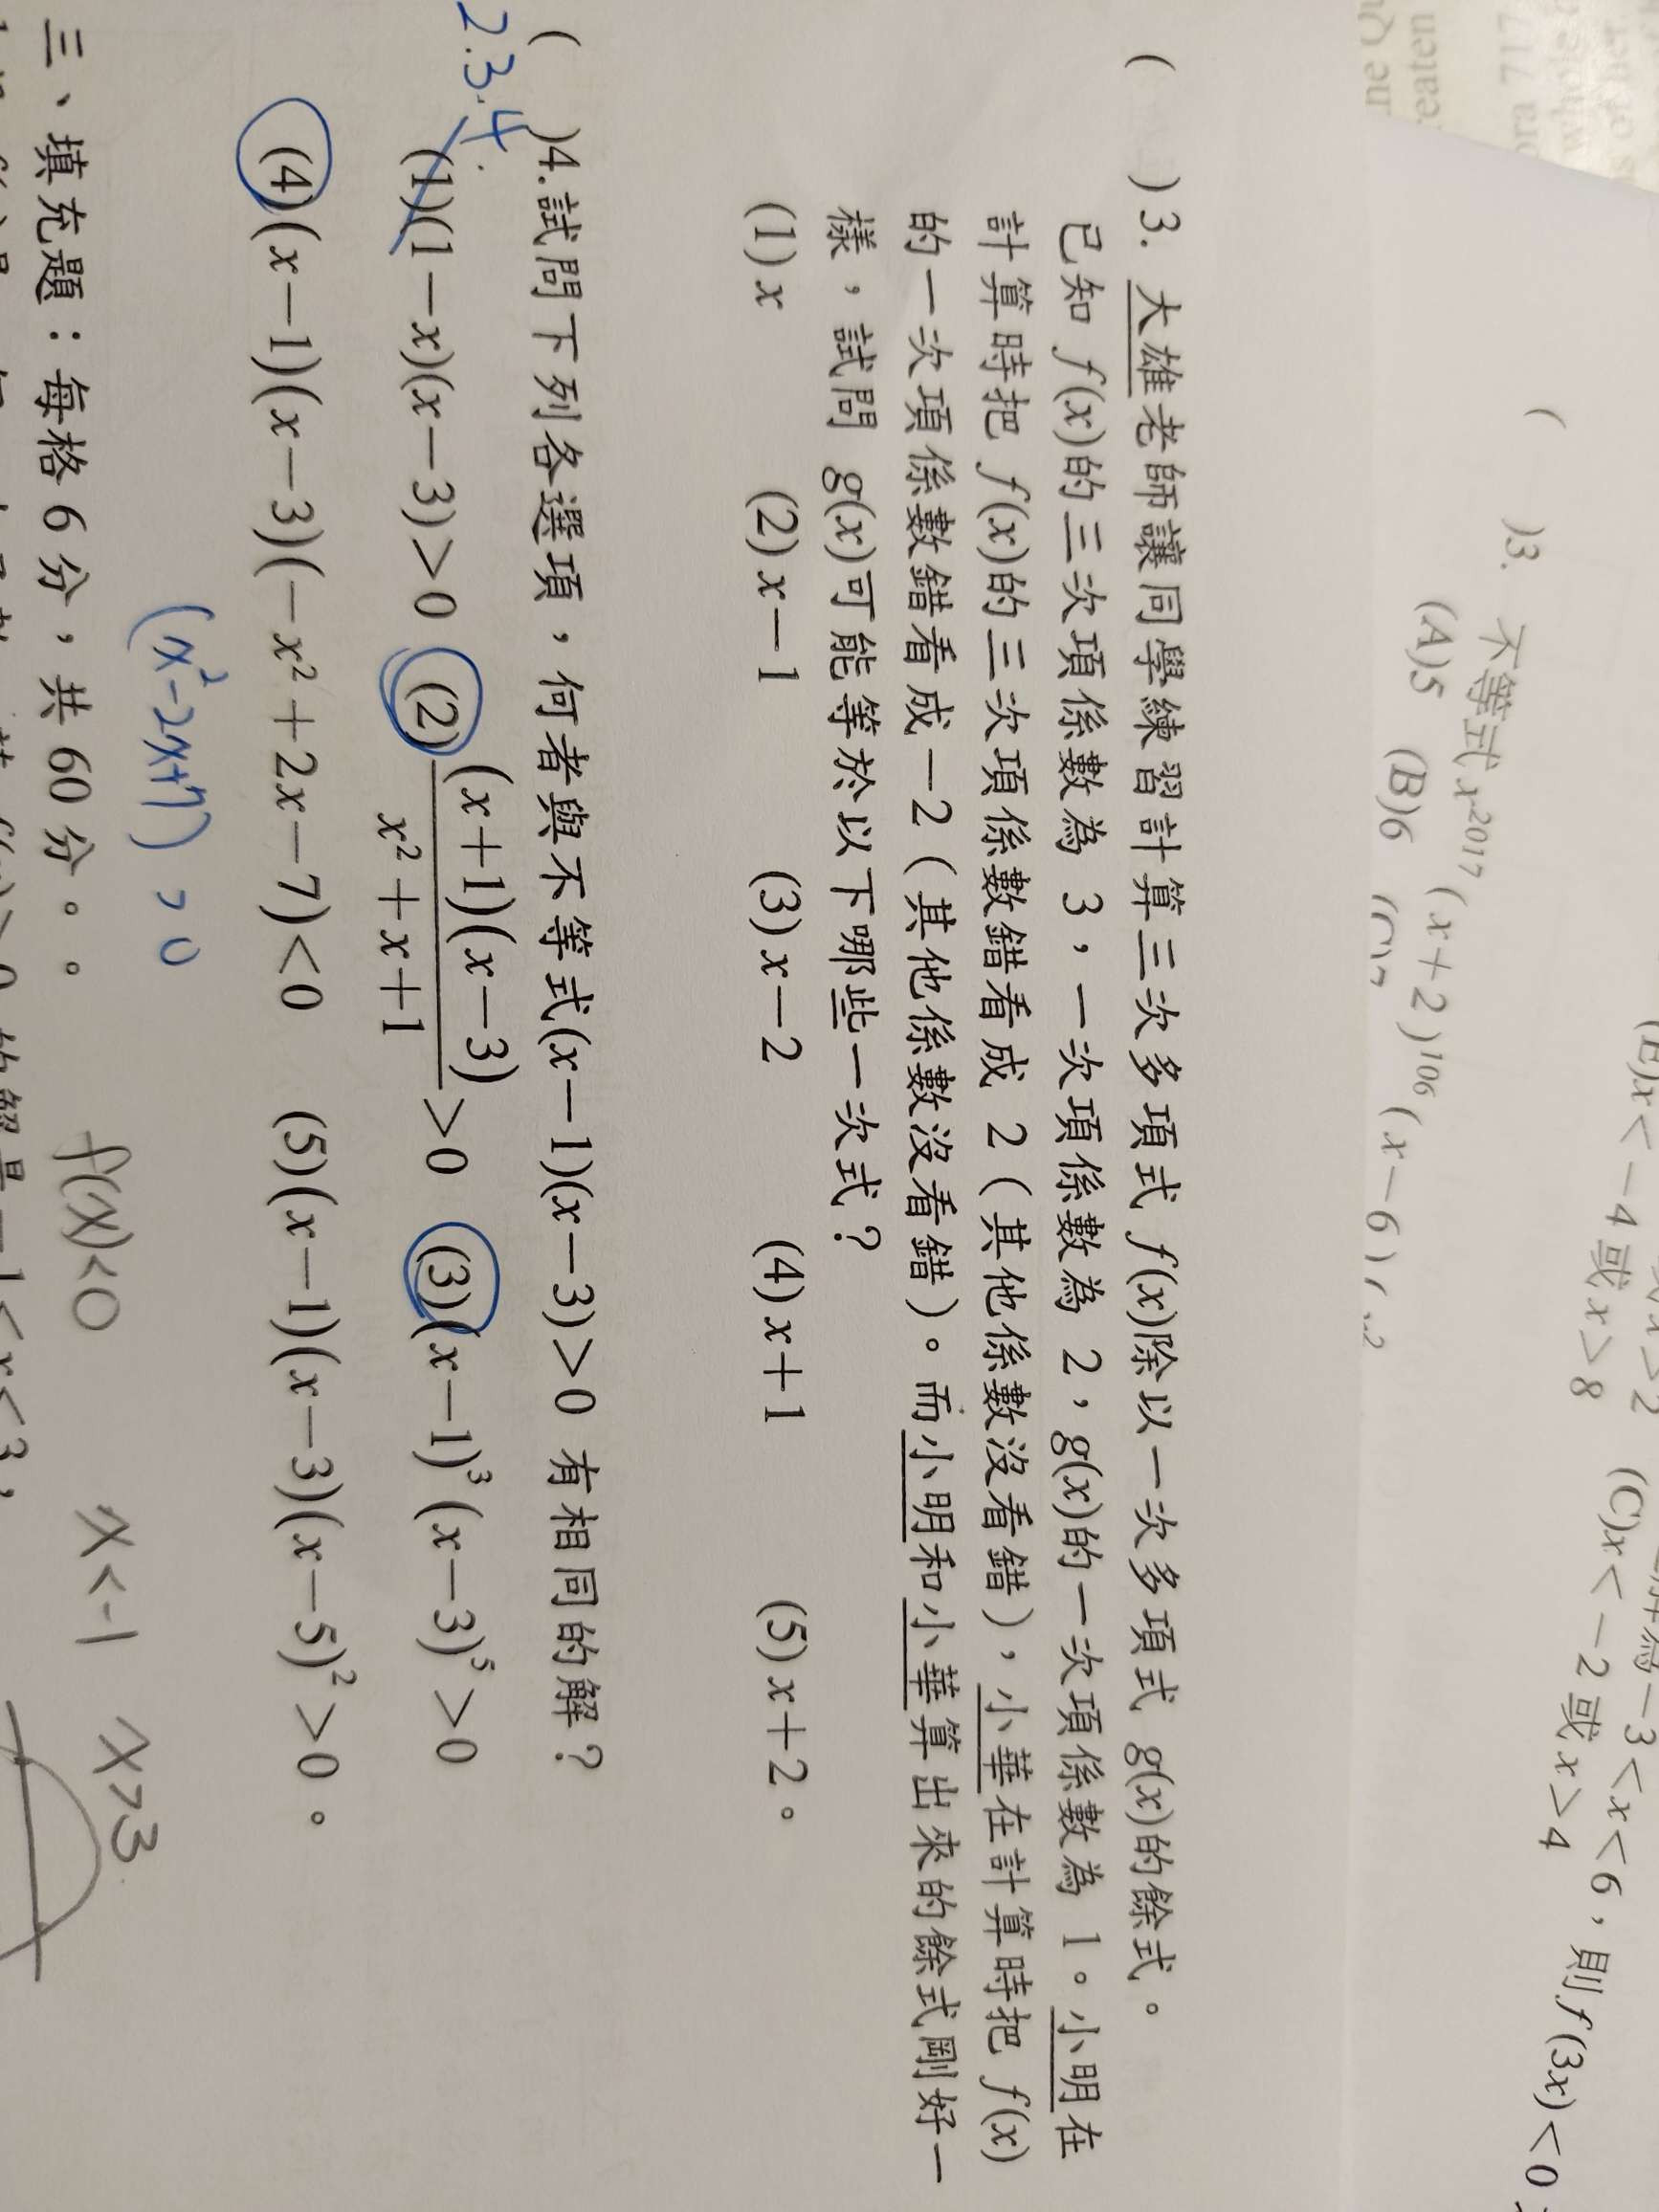 (E)x<-4 或 x>8
(C)x<-2 或 x>4
-3<x<6,則 f(3x)<0
( )3. 不等式 x²⁰¹⁷(x+2)¹⁰⁶(x-6)
(A)5 (B)6
( )3. 大雄老師讓同學練習計算三次多項式 f(x)除以一次多項式 g(x)的餘式。
已知 f(x)的三次項係數為 3,一次項係數為 2,g(x)的一次項係數為 1。小明在
計算時把 f(x)的三次項係數錯看成 2(其他係數沒看錯),小華在計算時把 f(x)
的一次項係數錯看成-2(其他係數沒看錯)。而小明和小華算出來的餘式剛好一
樣,試問 g(x)可能等於以下哪些一次式?
(1) x (2) x-1 (3) x-2 (4) x+1 (5) x+2。
2.3.4
( )4.試問下列各選項,何者與不等式(x-1)(x-3)>0 有相同的解?
(1)(1-x)(x-3)>0 (2)(x+1)(x-3)/x²+x+1>0 (3)(x-1)³(x-3)⁵>0
(4)(x-1)(x-3)(-x²+2x-7)<0 (5)(x-1)(x-3)(x-5)²>0。
(x²-2x+7)>0
三、填充題:每格 6 分,共 60 分。。
f(x)<0 x<-1 x>3
的解是-1<x<3,